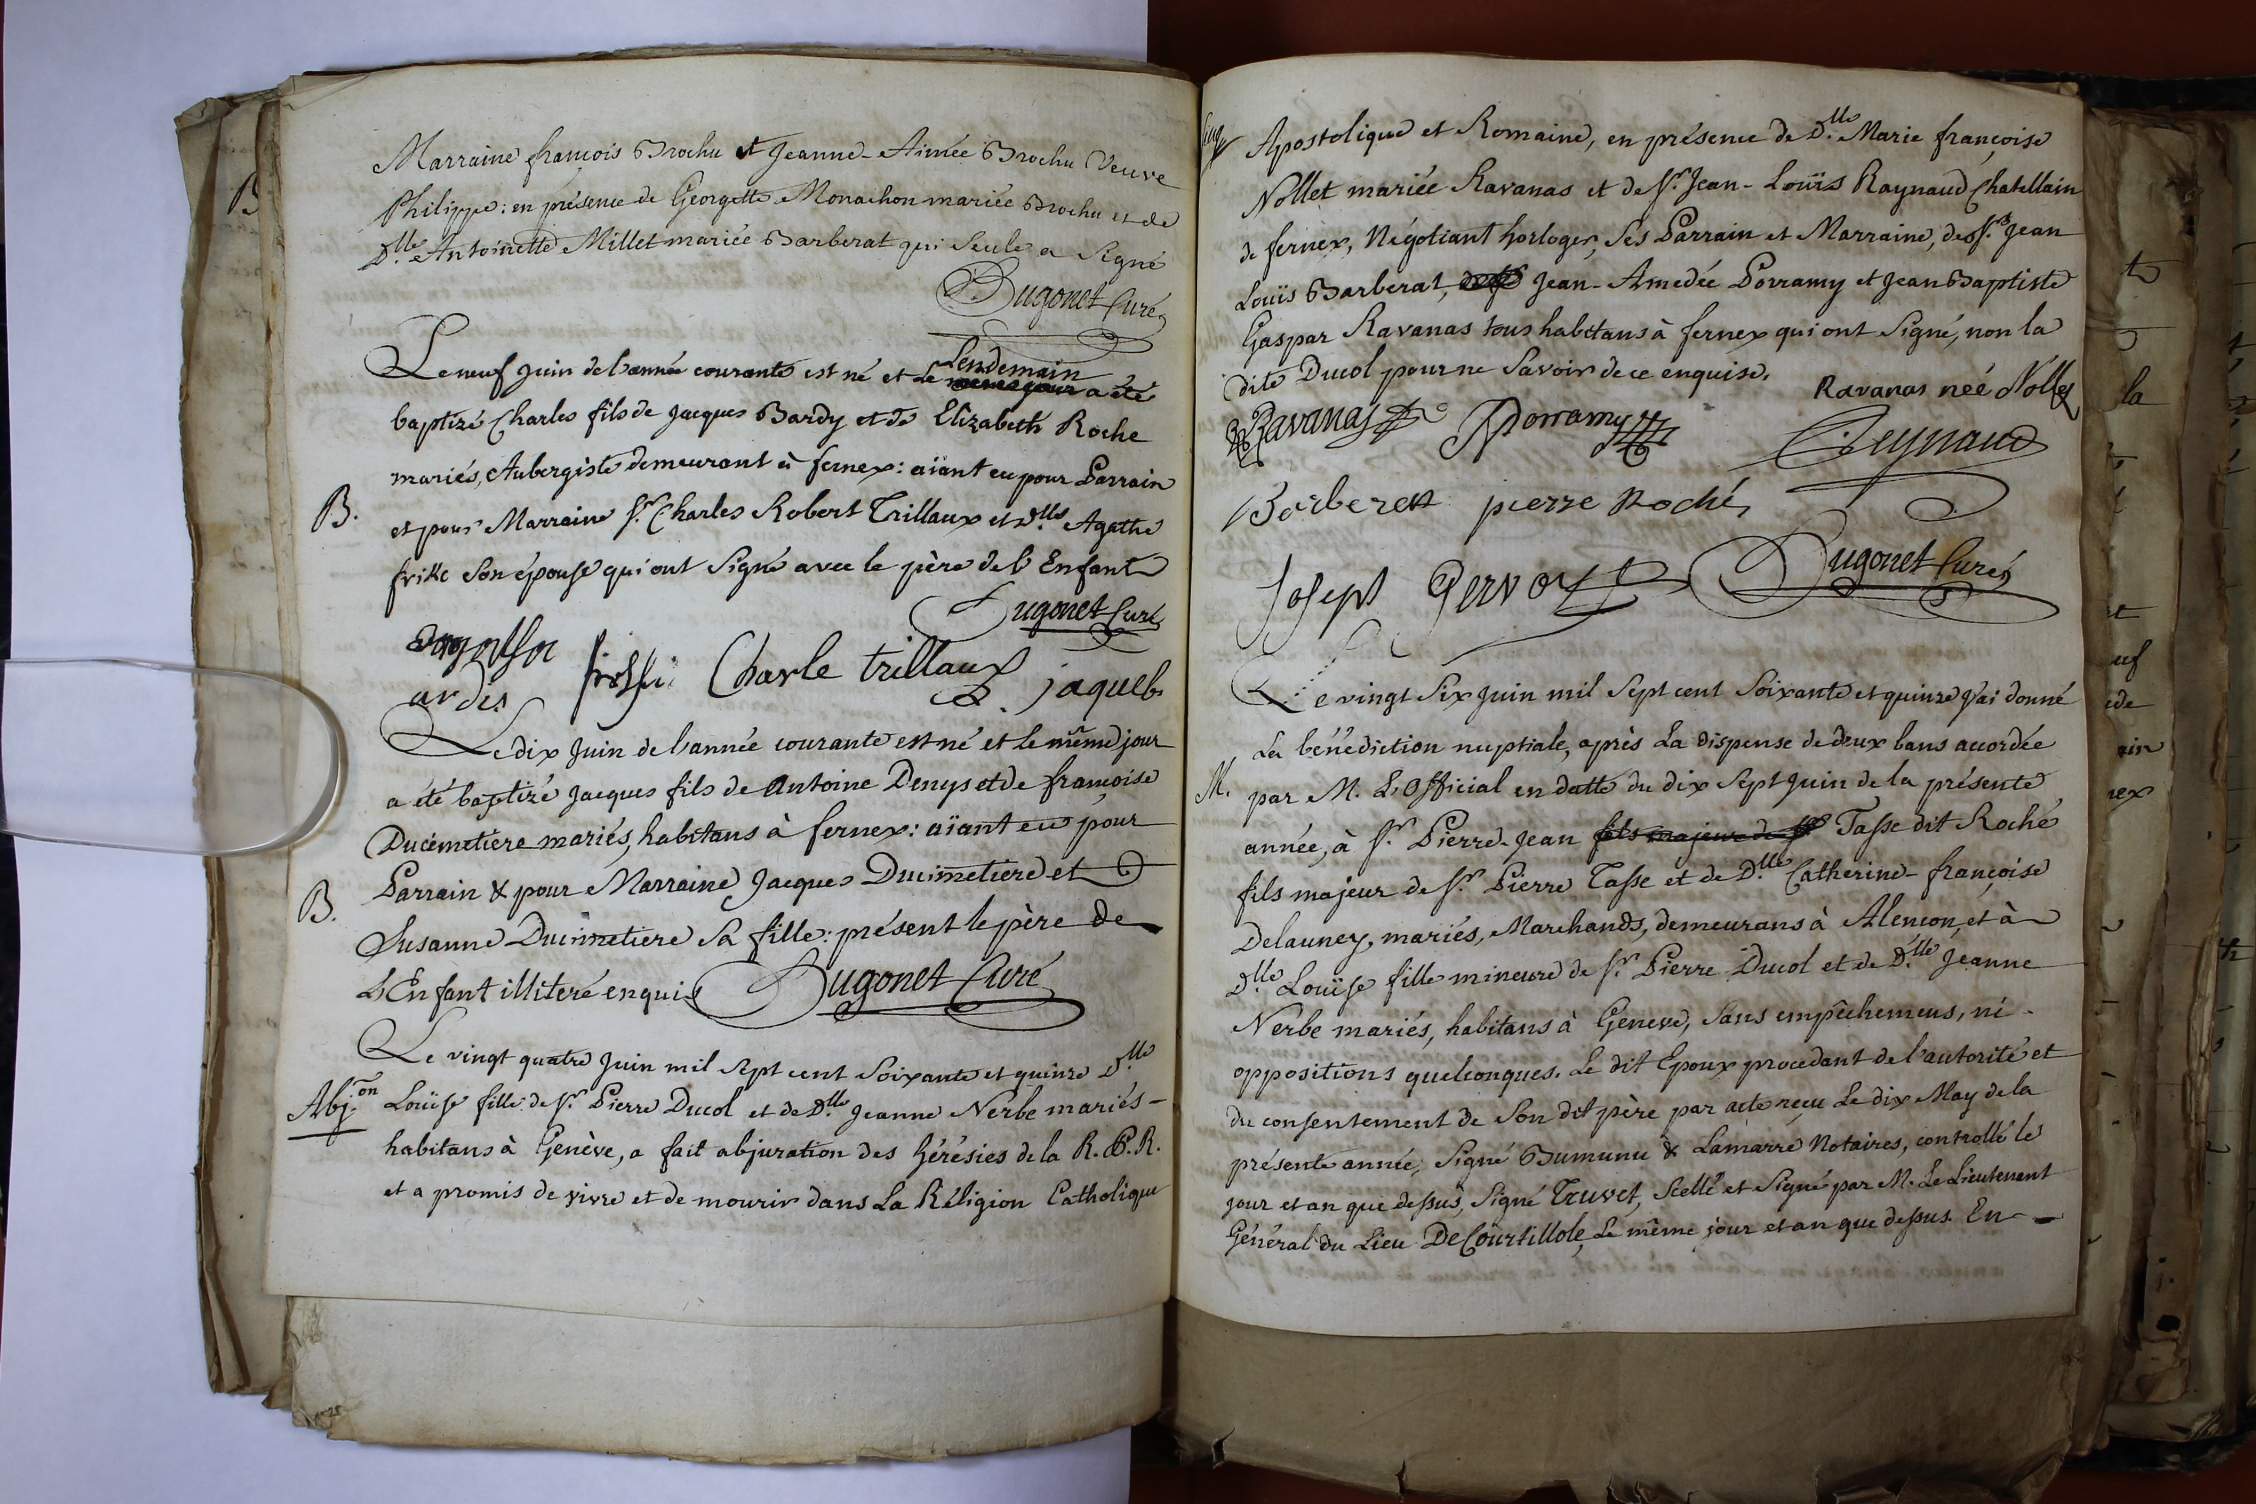 Marraine françois Brochu et Jeanne-Aimée Brochu Veuve
Philippe: en présence de Georgette Monachon mariée Brochu et de
D.lle Antoinette Millet mariée Barberat qui seule a signé
Dugonet Curé
Le neuf Juin de l'année courante est né et le lendemain
a été
baptizé Charles fils de Jacques Bardy et de Elizabeth Roche
mariés, Aubergiste demeurant à fernex: aïant eu pour Parrain
B.
et pour Marraine S.r Charles Robert Trillaux et D.lle Agathe
son épouse qui ont signé avec le père de l'Enfant
Dugonet Curé
Charle trillaux
jaqueb
ardis
Le dix Juin de l'année courante est né et le même jour
a été baptizé Jacques fils de Antoine Denys et de françoise
Ducimetière mariés, habitans à fernex: aïant eu pour
B.
Parrain & pour Marraine Jacques Ducimetiere et
Susanne Ducimetiere sa fille: présent le père de
L'Enfant illiteré enquis Dugonet Curé
Le vingt quatre Juin mil sept cent soixante et quinze D.lle
Abj.on
Louïse fille de S.r Pierre Ducol et de D.lle Jeanne Nerbe mariés-
habitans à Genève, a fait abjuration des hérésies de la R.P.R.
et a promis de vivre et de mourir dans La Réligion Catholique
Apostolique et Romaine, en présence de D.lle Marie françoise
Nollet mariée Ravanas et de S.r Jean-Louïs Raynaud Chatellain
de fernex, Négotiant horloger, ses Parrain et Marraine, de S.rs Jean
Louïs Barberat, Jean-Amedée Porramy et Jean Baptiste
Gaspar Ravanas tous habitans à fernex qui ont signé, non la
dite Ducol pour ne savoir de ce enquise.
Ravanas neé Nollet
Ravanas
Porramy
Reynaud
Barberat
pierre Roché
Joseph Gervory
Dugonet Curé
Le vingt six Juin mil sept cent soixante et quinze j'ai donné
La bénédiction nuptiale, après La dispense de deux bans accordée
M.
par M. L'Official en datte du dix sept Juin de la présente
année, à S.r Pierre-Jean fils majeur de S.r Tasse dit Roché
fils majeur de S.r Pierre Tasse et de D.lle Catherine-françoise
Delauney, mariés, Marchands, demeurans à Alencon, et à
D.lle Louïse fille mineure de S.r Pierre Ducol et de D.lle Jeanne
Nerbe mariés, habitans à Geneve, sans empêchemens, ni-
oppositions quelconques. Le dit Epoux procedant de l'autorité et
du consentement de son dit père par acte reçu Le dix May de la
présente année, signé Bumunu & Lamarre Notaires, controllé le
jour et an que dessus, signé Truvet, scellé et signé par M. Le Lieutenent
Général du Lieu De Courtillole, Le même jour et an que dessus. En-